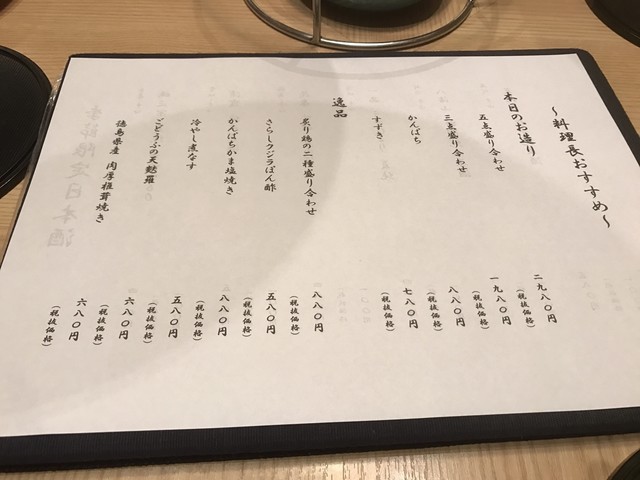 〜料理長おすすめ〜
本日のお造り
五点盛り合わせ 二九八〇円
(税抜価格)
三点盛り合わせ 一九八〇円
(税抜価格)
かんぱち 八八〇円
(税抜価格)
すずき 七八〇円
(税抜価格)
逸品
炙り鶏の二種盛り合わせ 八八〇円
(税抜価格)
さらしクジラぽん酢 五八〇円
(税抜価格)
かんぱちかま塩焼き 八八〇円
(税抜価格)
冷やし煮なす 五八〇円
(税抜価格)
ごどうふの天麩羅 六八〇円
(税抜価格)
徳島県産 肉厚椎茸焼き 六八〇円
(税抜価格)